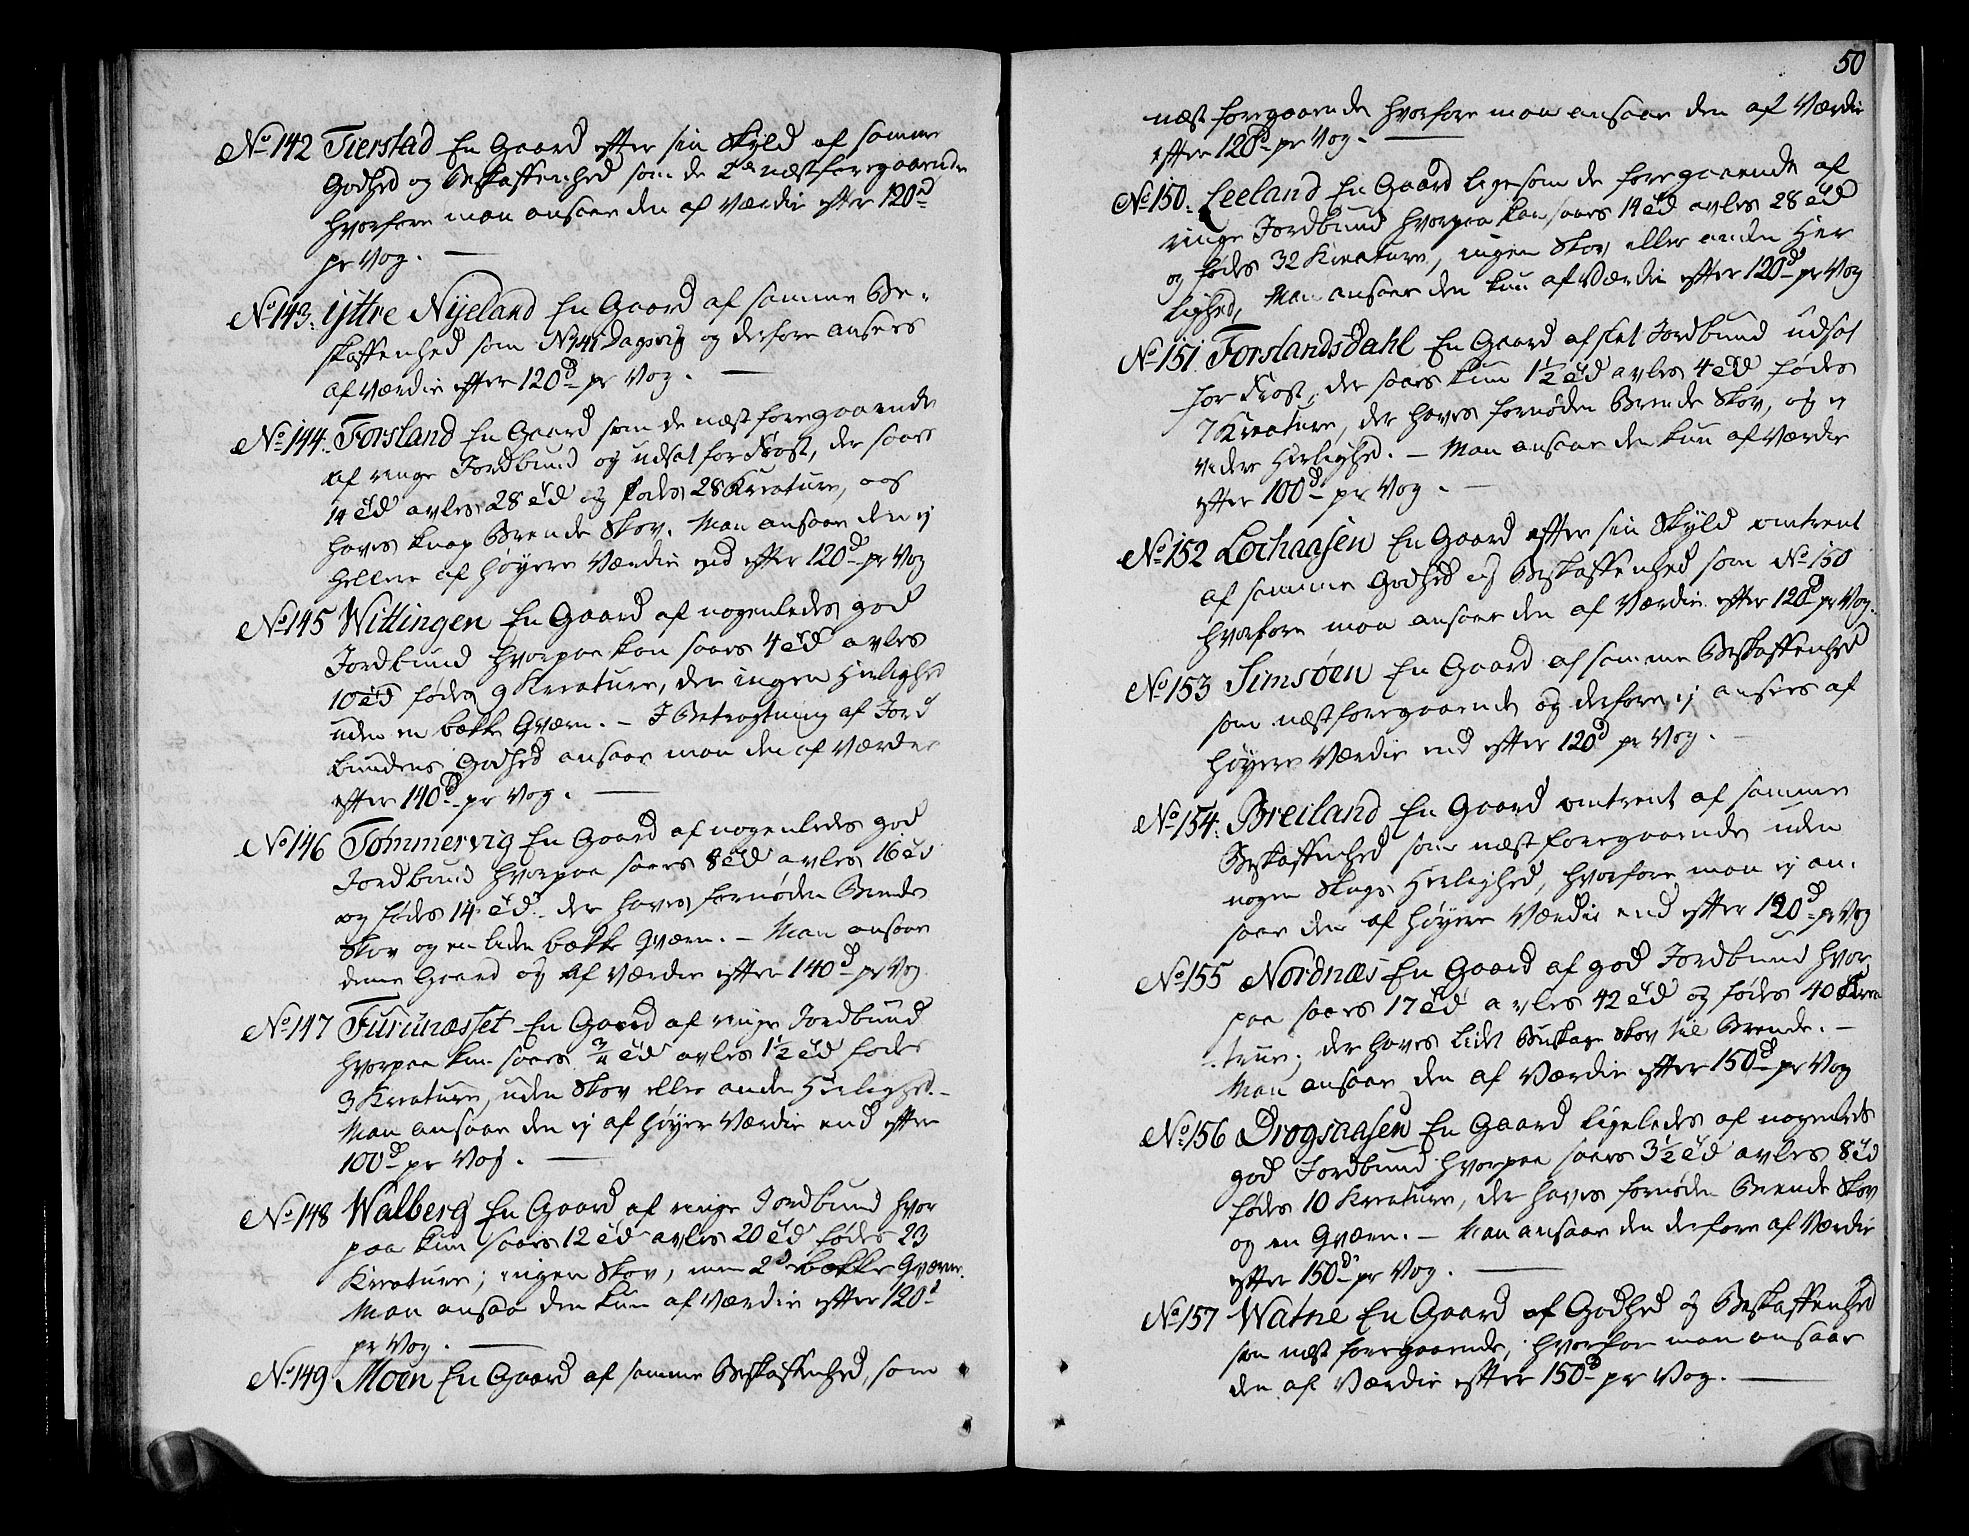 No 142 Tierstad En Gaard efter sin Skyld af samme
Godhed og Beskaffenhed som de 2de næst foregaaende
hvorfore man ansaae den af Værdie efter 120d
pr Vog. —
No 143. ÿttre Nÿeland En Gaard af samme Be-
skaffenhed som No 141 Dagsvig og derfore ansees
af Værdie efter 120d pr Vog. —
No 144. Forsland En Gaard som de næst foregaaende
af ringe Jordbund og udsat for Frost, der saaes
14 td avles 28 td og fødes 28 Kreature, og
haves knap Brende Skov. Man ansaae den ej
hellere af høyere Værdie end efter 120d pr Vog
No 145 Wittingen En Gaard af nogenledes god
Jordbund hvorpaa kan saaes 4 td avles
10 td fødes 9 Kreature, der ingen Herlighed
uden en bække Qværn. – I Betragtning af Jord
bundens Godhed ansaae man den af Værdie
efter 140d pr Vog. —
No 146 Tømmervig En Gaard af nogenledes god
Jordbund hvorpaa saaes 8 td avles 16 td
og fødes 14 td. der haves fornøden Brende
Skov og en liden bække Qværn. – Man ansaae
denne Gaard og af Værdie efter 140d pr Vog.
No 147 Furunæsset En Gaard af ringe Jordbund
hvorpaa kun saaes 3/4 td avles 1 1/2 td føder
3 Kreature, uden Skov eller anden Herlighed. –
Man ansaae den ej af høyere Værdie end efter
100d pr Vog. —
No 148 Walberg En Gaard af ringe Jordbund hvor
paa kun saaes 12 td avles 20 td føder 23
Kreature; ingen Skov, men 2de bække Qværne.
Man ansaae den kun af Værdie efter 120d
pr Vog. —
No 149 Moen En Gaard af samme Beskaffenhed, som
50
næst foregaaende hvorfore man ansaae den af Værdie
efter 120d pr Vog. —
No 150. Leeland En Gaard ligesom de foregaaende af
ringe Jordbund hvorpaa kan saaes 14 td avles 28 td
og fødes 32 Kreature, ingen Skov eller anden Her
lighed, Man ansaae den kun af Værdie efter 120d pr Vog
No 151. Forslandsdahl En Gaard af slet Jordbund udsat
for Frost, der saaes kun 1 1/2 td avles 4 td fødes
7 Kreature, der haves fornøden Brende Skov, og ej
videre Herlighed. – Man ansaae den kun af Værdie
efter 100d pr Vog. —
No 152 Lochaasen En Gaard efter sin Skyld omtrent
af samme Godhed og Beskaffenhed som No 150
hvorfore man ansaae den af Værdie efter 120d pr Vog.
No 153 Simsøen En Gaard af samme Beskaffenhed
som næst foregaaende og derfore ej ansees af
høyere Værdie end efter 120d pr Vog. –
No 154. Breiland En Gaard omtrent af samme
Beskaffenhed som næst foregaaende uden
nogen Skogs Herlighed, hvorfore man ej an-
saae den af høyere Værdie end efter 120d pr Vog
No 155 Nordnæs En Gaard af god Jordbund hvor
paa saaes 17 td avles 42 td og fødes 40 Krea
ture; der haves lidt Buskage Skov til Brende. –
Man ansaae den af Værdie efter 150d pr Vog
No 156 Drogsaasen En Gaard ligeledes af nogenleds
god Jordbund hvorpaa saaes 3 1/2 td avles 8 td
fødes 10 Kreature, der haves fornøden Brende Skov
og en Qværn. – Man ansaae den derfore af Værdie
efter 150d pr Vog. —
No 157 Watne En Gaard af Godhed og Beskaffenhed
som næst foregaaende, hvorfor man ansaae
den af Værdie efter 150d pr Vog. —